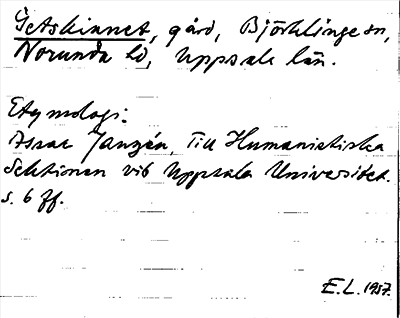 Getskinnet, gård, Björklinge sn,
Norunda hd, Uppsala län.
Etymologi:
Assar Janzén, Till Humanistiska
Sektionen vid Uppsala Universitet.
s. 6 ff.
E.L. 1957.